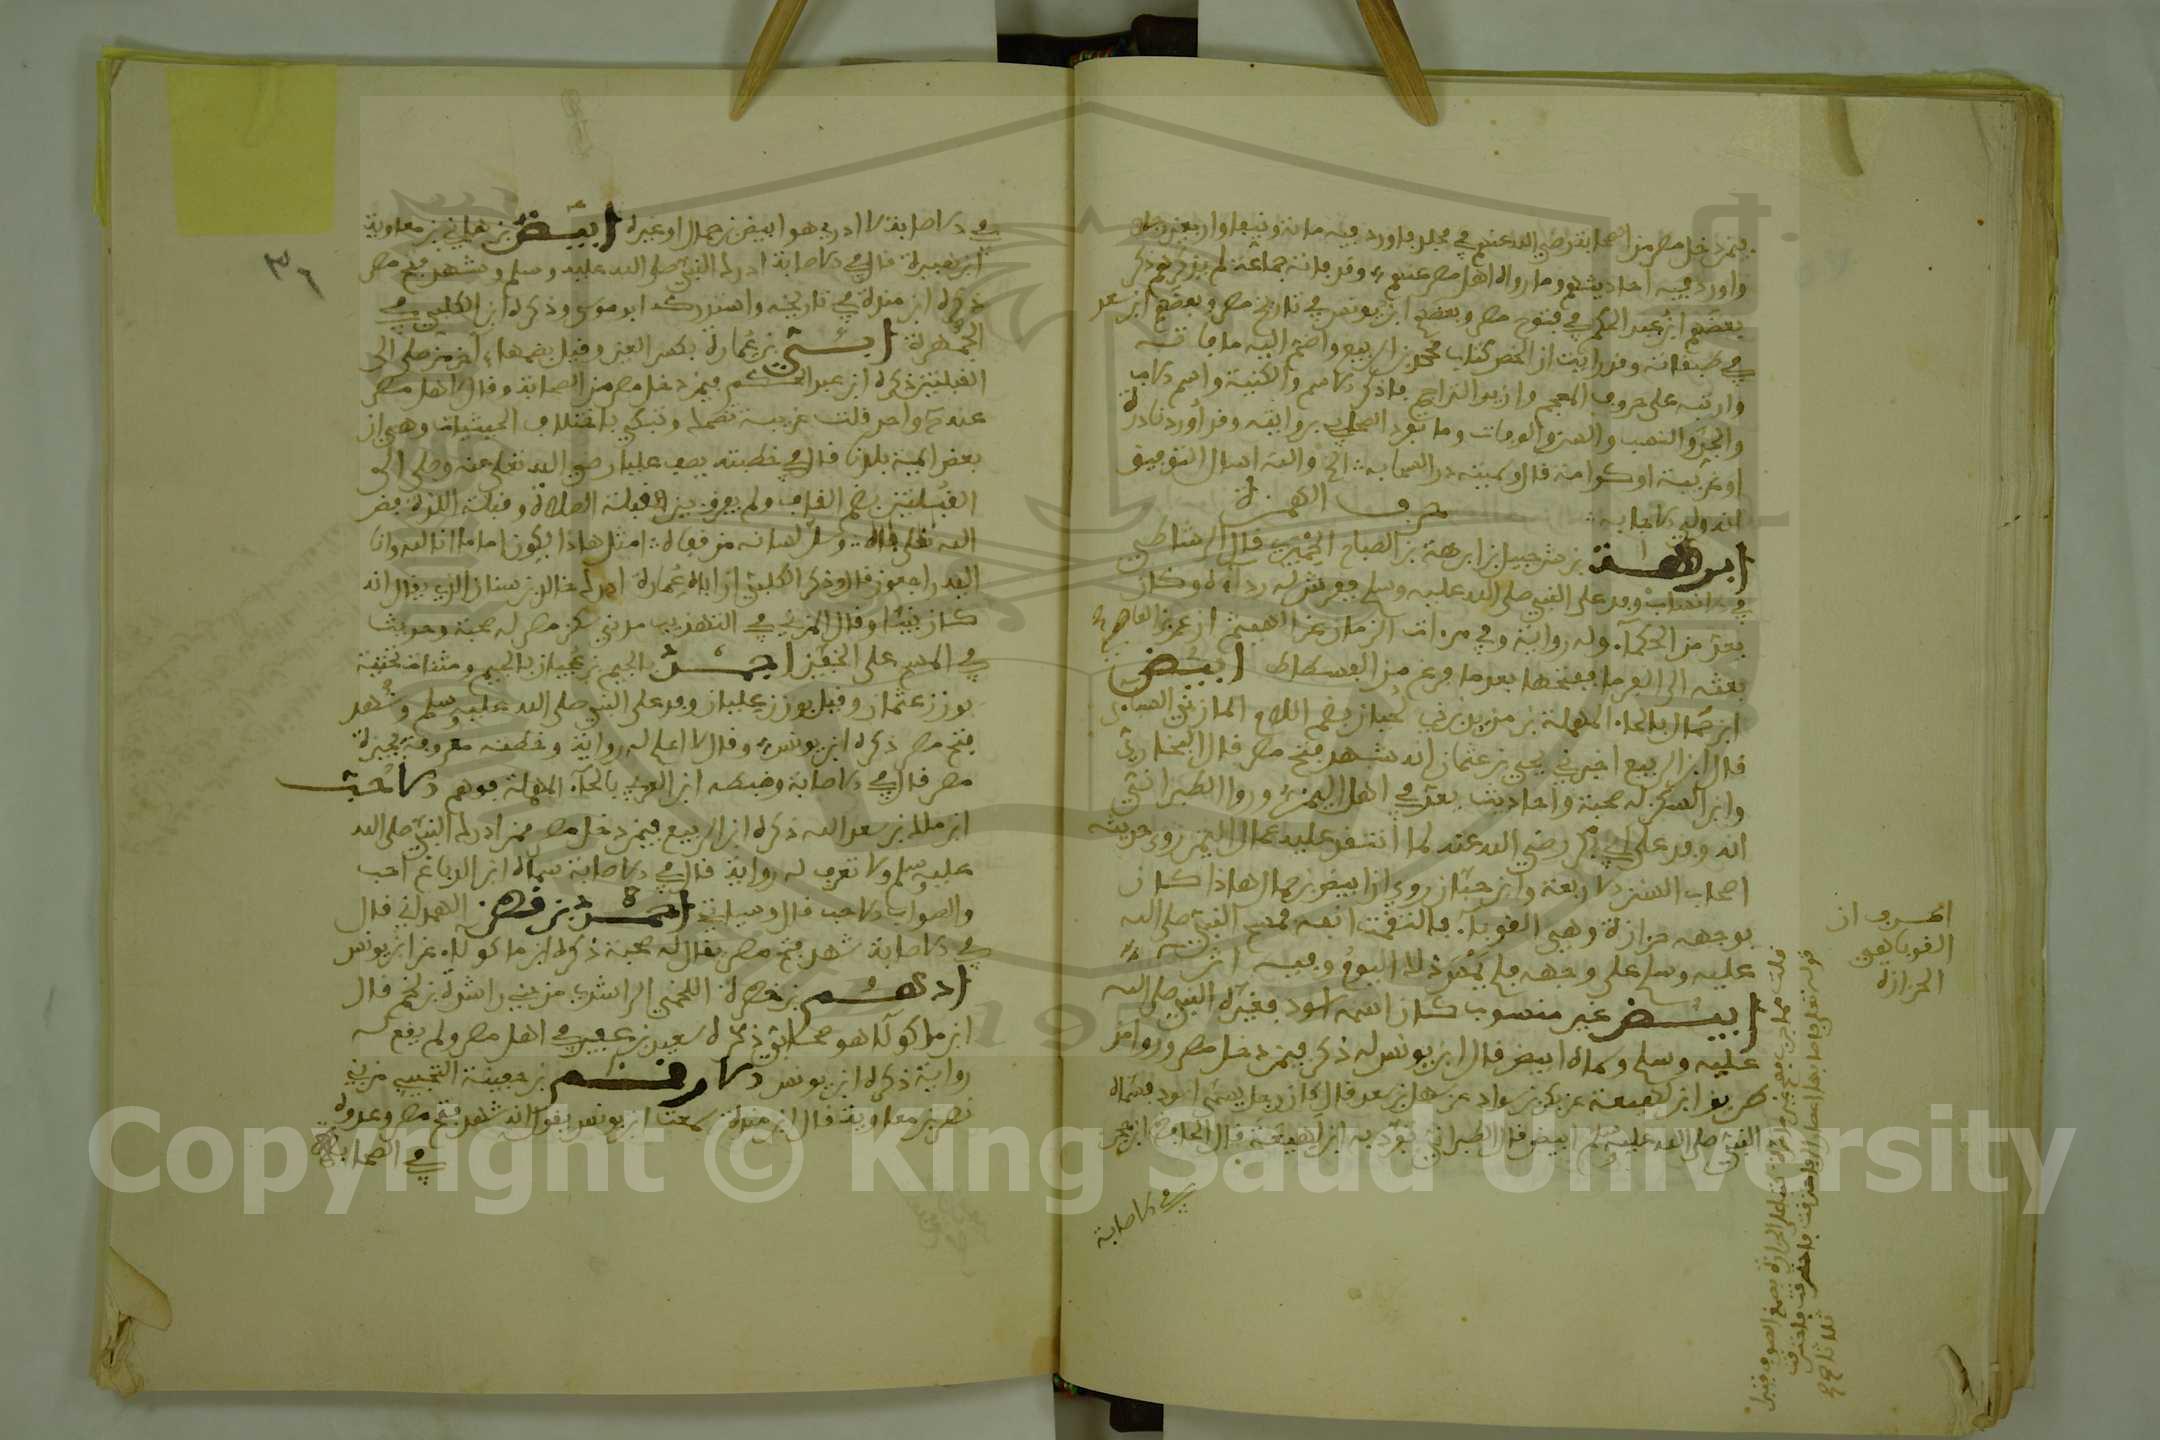 فيمن دخل مصر من الصحابة رضي الله عنهم في مجلد فاورد فيه مائة ونيفا واربعين رجلا
واورد فيه احاديثهم وما رواه اهل مصر عنهم وقد فاته جماعة لم يذكرهم ذكر
بعضهم ابن عبد الحكم في فتوح مصر وبعضهم ابن يونس في تاريخ مصر وبعضهم ابن سعد
في طبقاته وقد رايت ان الخص كتاب محمد بن الربيع واضم اليه ما فاته
وارتبه على حروف المعجم وازيد التراجم فاذكر الاسم والكنية واسم الاب
والجد والنسب والسن والوفات وما تفرد الصحابي بروايته وقد اورد نادرة
او غريبة او كرامة قال وسميته در السحابة الخ والله اسال التوفيق
انه ولي الاجابة
حرف الهمزة
ابرهة بن شرحبيل بن ابرهة بن الصباح الحميري قال الرشاطي
في الانساب وفد على النبي صلى الله عليه وسلم ففرش له رداءه وكان
يعد من الحكماء وله رواية وفي مرءات الزمان عن الهيثم ان عمرو بن العاصي
بعثه الى الفرما ففتحها بعد ما فرغ من الفسطاط ابيض
ابن حمال بالحاء المهملة بن مزيد بن ذي لحيان بضم اللام المازني السباءي
قال ابن الربيع اخبرني يحيى بن عثمان انه شهد فتح مصر قال البخاري
وابن السكن له صحبة واحاديث يعد في اهل اليمن وروا الطبراني
انه وفد على ابي بكر رضي الله عنه لما انتقض عليه عمال اليمن روى حديثه
اصحاب السنن الاربعة وابن حبان روي ان ابيض بن حمال هاذا كان
بوجهه حزازة وهي القوباء فالتقمت انفه فمسح النبي صلى الله
عليه وسلم على وجهه فلم يمس ذلك اليوم وفيه اثر
ابيض غير منسوب كان اسمه اسود فغيره النبي صلى الله
عليه وسلم وسماه ابيض قال ابن يونس له ذكر فيمن دخل مصر وروا من
طريق ابن لهيعة عن بكر بن سواد عن سهل بن سعد قال كان رجل يسمى اسود فسماه
النبي صلى الله عليه وسلم ابيض قال الطبراني تفرد به ابن لهيعة قال الحافظ ابن حجر
في الاصابة
اعرف ان
القوبا هي
الحزازة
في الاصابة لا ادري هو ابيض بن حمال او غيره ابيض بن هاني بن معاوية
ابو هبيرة قال في الاصابة ادرك النبي صلى الله عليه وسلم وشهد فتح مصر
ذكره ابن مندة في تاريخه واستدركه ابو موسى وذكره ابن الكلبي في
الجمهرة ابي بن عمارة بكسر العين وقيل بضمها اخر من صلى الى
القبلتين ذكره ابن عبد الحكم فيمن دخل مصر من الصحابة وقال اهل مصر
عنه واحد قلت غريبة تضحك وتبكي باختلاف الحيثيات وهي ان
بعض ايمة بلدنا قال في خطبته يصف عليا رضي الله تعلى عنه وصلى الى
القبلتين بضم القاف ولم يفرق بين قبلة الصلاة وقبلة اللذة فض
الله تعلى فاه وسل لسانه من قفاه امثل هاذا يكون اماما انا لله وانا
اليه راجعون قال وذكر الكلبي ان اباه عمارة ادرك خالد بن سنان الذي يقال انه
كان نبيا وقال المزي في التهذيب مدني سكن مصر له صحبة وحديث
في المسح على الخفين اجمد بالجيم بن عجيان بالجيم ومثناة تحتية
بوزن عثمان وقيل بوزن عليان وفد على النبي صلى الله عليه وسلم وشهد
فتح مصر ذكره ابن يونس وقال لا اعلم له رواية وخطته معروفة بجيزة
مصر قال في الاصابة وضبطه ابن الفرات بالحاء المهملة فوهم الاحب
ابن مالك بن سعد الله ذكره ابن الربيع فيمن دخل مصر ممن ادرك النبي صلى الله
عليه وسلم ولا تعرف له رواية قال في الاصابة سماه ابن الدباغ احب
والصواب الاحب قال وسياتي احمد بن قطن الهمداني قال
في الاصابة شهد فتح مصر يقال له صحبة ذكره ابن ماكولا عن ابن يونس
ادهم بن حضرة اللخمي الراشدي من بني راشدة بن لخم قال
ابن ماكولا هو صحابي ذكره سعيد بن عفير في اهل مصر ولم يقع له
رواية ذكره ابن يونس الارقم بن جفينة التجيبي من بني
نصر بن معاوية قال ابن مندة سمعت ابن يونس يقول انه شهد فتح مصر وعداده
في الصحابة